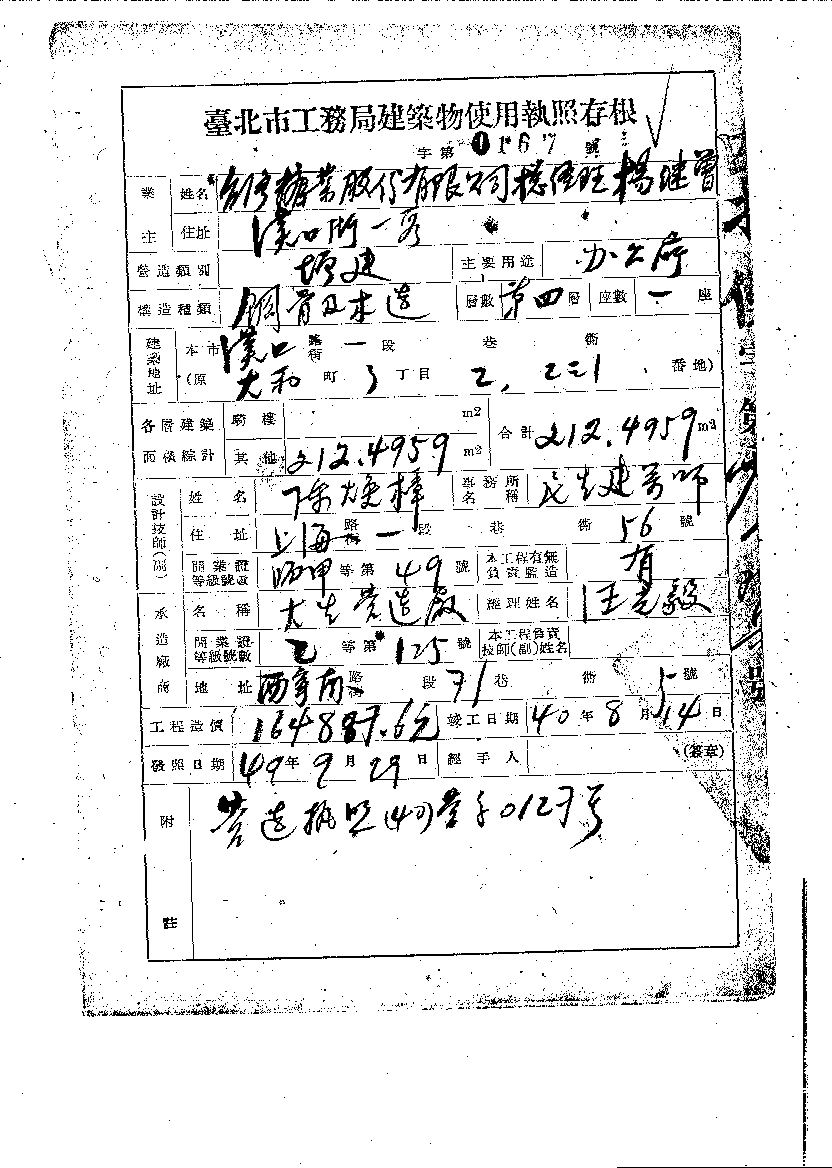 臺北市工務局建築物使用執照存根
字第 0167 號
業主 姓名 台灣糖業股份有限公司總經理楊繼曾
住址 漢口街一段
營造類別 增建 主要用途 办公廳
構造種類 鋼骨及木造 層數 第四層 座數 一座
建築地址 本市 漢口路街 一段 巷 衖
(原 大和町 3丁目 2, 2 番地)
各層建築面積總計 騎樓 m2 合計 212.4959 m2
其他 212.4959 m2
設計技師(副) 姓名 陳 事務所名稱 建築師
住址 上海路街 一段 巷 衖 56 號
開業證等級號數 甲等第 49 號 本工程有無負責監造 有
承造廠商 名稱 大生營造廠 經理姓名 汪 毅
開業證等級號數 乙等第 125 號 本工程負責技師(副)姓名
地址 西寧南路街 段 71 巷 衖 5 號
工程造價 164887.6元 竣工日期 40年8月14日
發照日期 49年9月29日 經手人 (簽章)
附註 营造执照(40)营字0127号